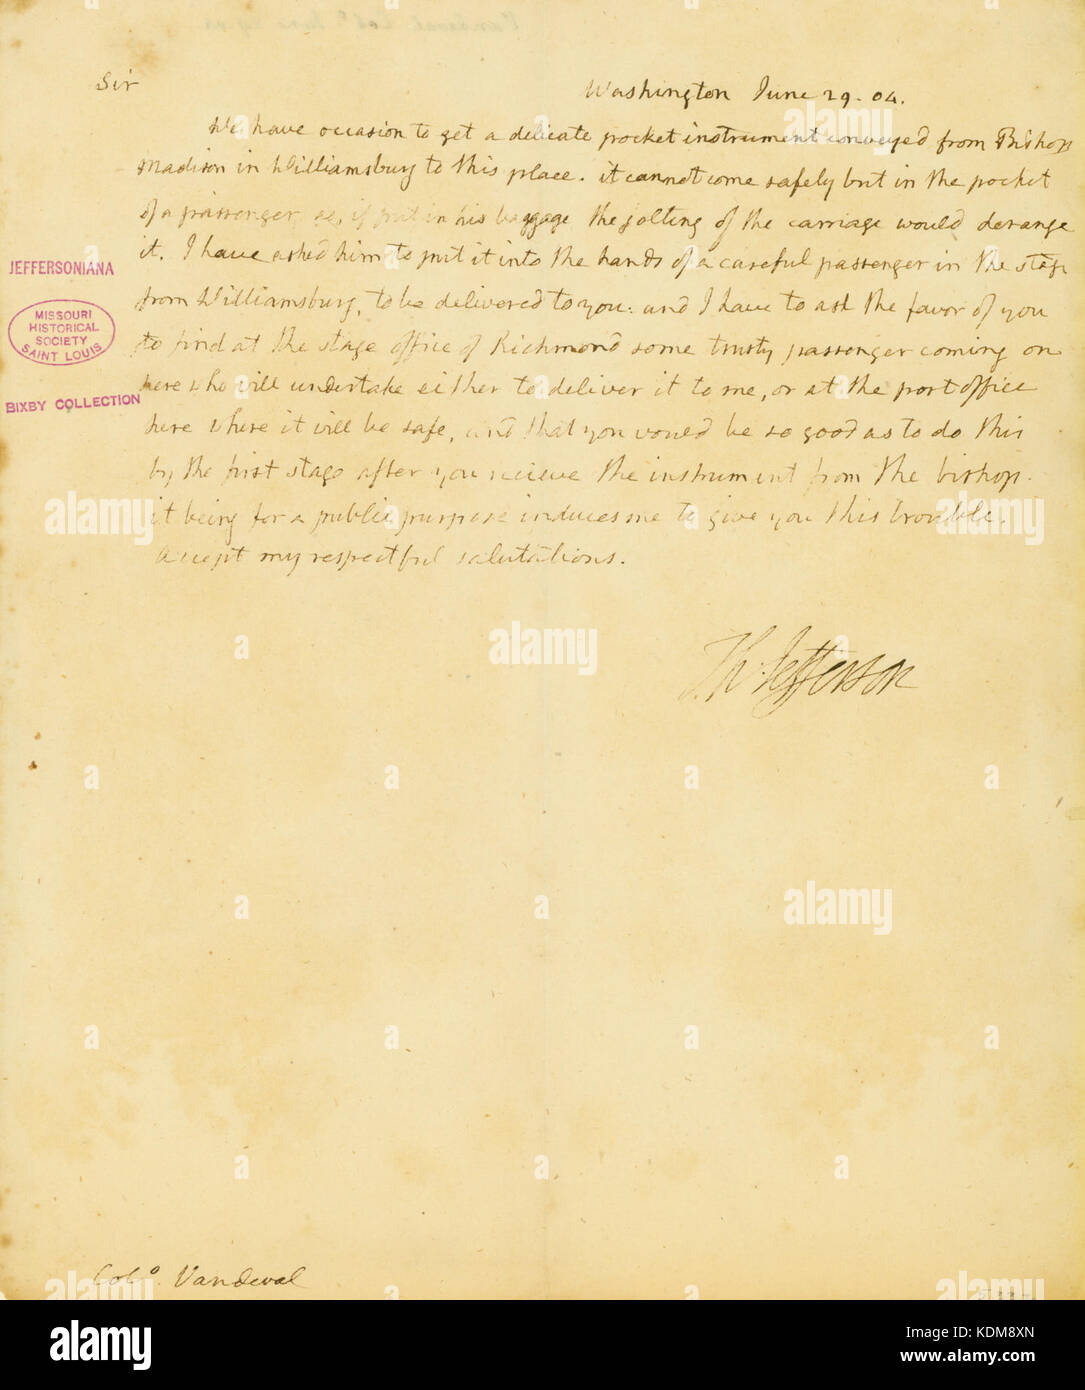 Sir
Washington June 29. 04.
We have occasion to get a delicate pocket instrument conveyed from Bishop
Madison in Williamsburg to this place. it cannot come safely but in the pocket
of a passenger, as, if put in his baggage the jolting of the carriage would derange
it. I have asked him to put it into the hands of a careful passenger in the stage
from Williamsburg, to be delivered to you: and I have to ask the favor of you
to find at the stage office of Richmond some trusty passenger coming on
here who will undertake either to deliver it to me, or at the post office
here where it will be safe, and that you would be so good as to do this
by the first stage after you recieve the instrument from the bishop.
it being for a public purpose induces me to give you this trouble.
Accept my respectful salutations.
Th: Jefferson
Colo. Vandeval
JEFFERSONIANA
MISSOURI
HISTORICAL
SOCIETY
SAINT LOUIS
BIXBY COLLECTION
alamy
alamy
alamy
alamy
alamy
alamy
alamy
alamy
a
alamy
Image ID: KDM8XN
www.alamy.com